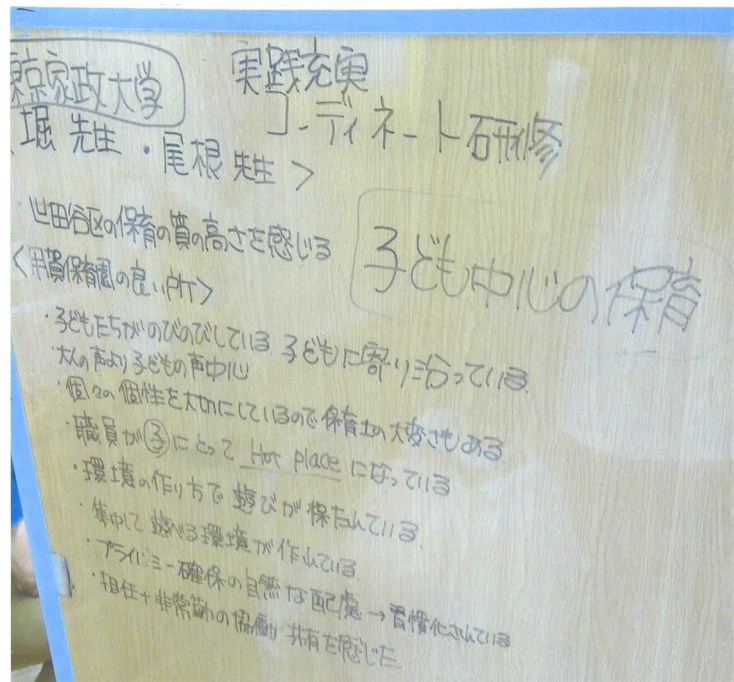 東京家政大学
実践充実
コーディネート研修
堀先生・尾根先生>
世田谷区の保育の質の高さを感じる
<用賀保育園の良い所>
子ども中心の保育
・子どもたちがのびのびしている 子どもに寄り沿っている
・大人の声より子どもの声中心
・個々の個性を大切にしているので保育士の大変さもある
・職員が子にとって Hot place になっている
・環境の作り方で遊びが保たれている
・集中して遊べる環境が作れている
・プライバシー確保の自然な配慮→習慣化されている
・担任+非常勤の協働 共有を感じた